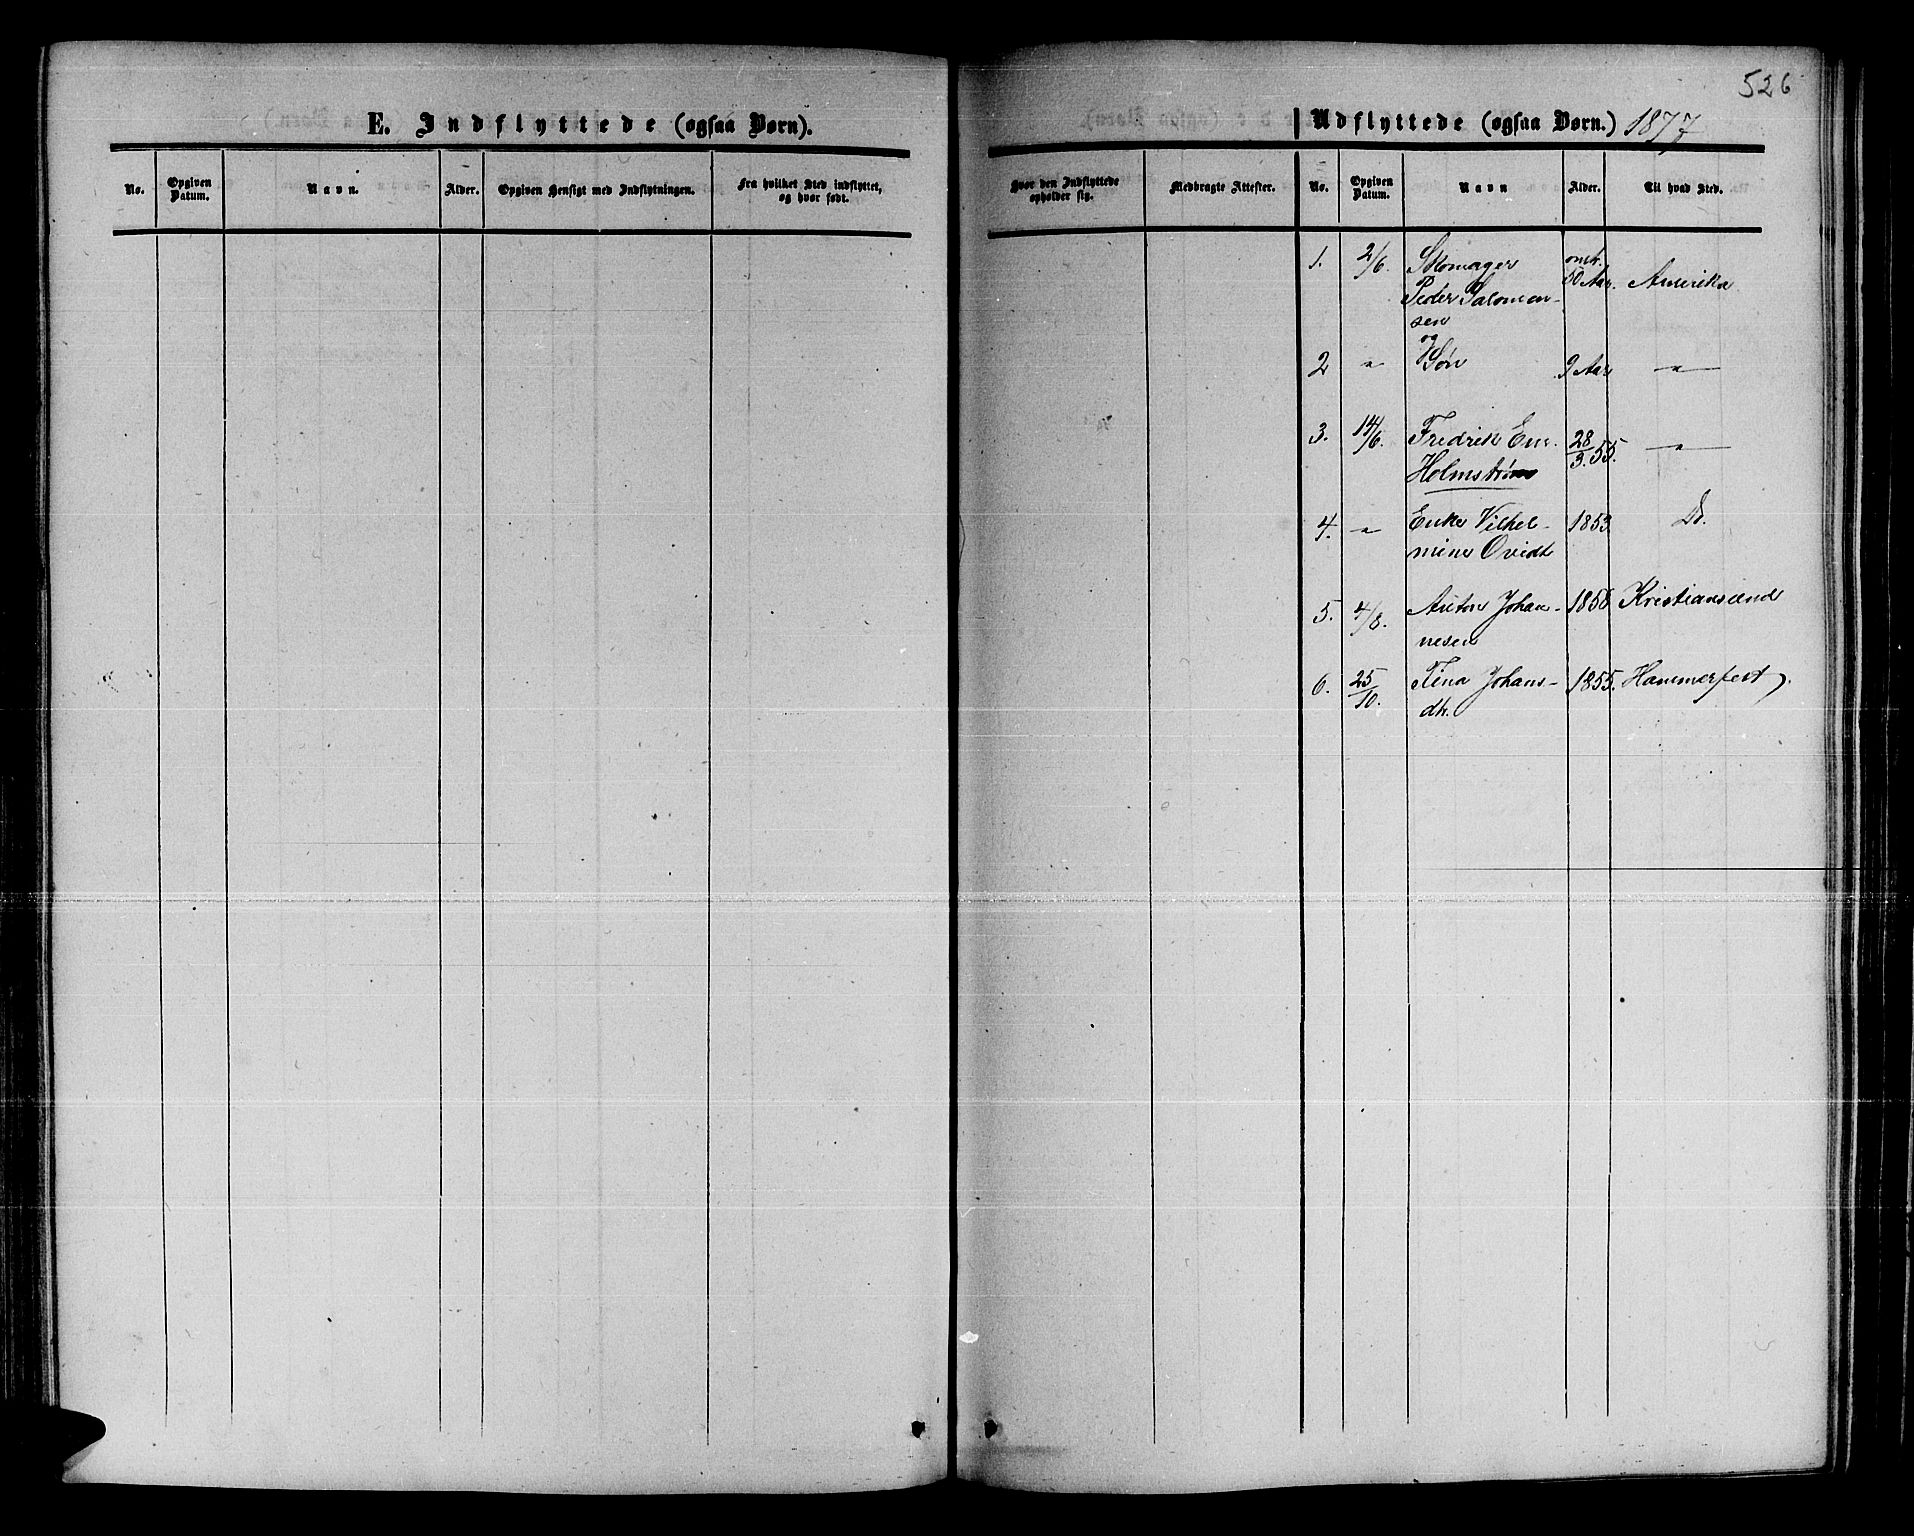 526
E. Indflyttede (ogsaa Børn).
Udflyttede (ogsaa Børn.) 1877
No.
Opgiven
Datum.
Navn.
Alder.
Opgiven Hensigt med Indflytningen.
Fra hvilket Sted indflyttet,
og hvor født.
Hvor den Indflyttede
opholder sig.
Medbragte Attester.
No.
Opgiven
Datum.
Navn
Alder.
Til hvad Sted.
1. 2/6. Skomager omtr.
Peder Salomon- 50 Aar. Amerika
sen
og
2 " Søn 9 Aar "
3. 14/6. Fredrik 28/3.55. "
Holmstrøm
4. " Vilhel- 1853. Do.
mine Qvidt
5. 4/8. Anton Johan- 1856 Kristiansund
nesen
6. 25/10. Tina Johans- 1855. Hammerfest
dtr.